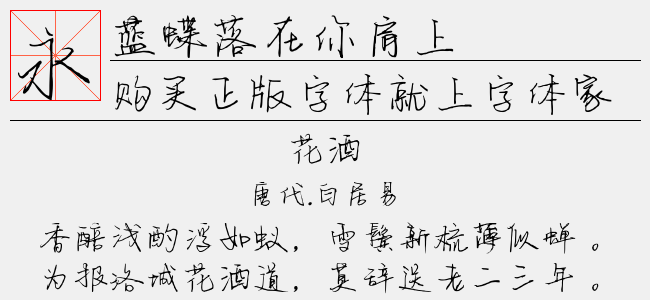 永
蓝蝶落在你肩上
购买正版字体就上字体家
花酒
唐代.白居易
香醅浅酌浮如蚁，雪鬓新梳薄似蝉。
为报洛城花酒道，莫辞送老二三年。